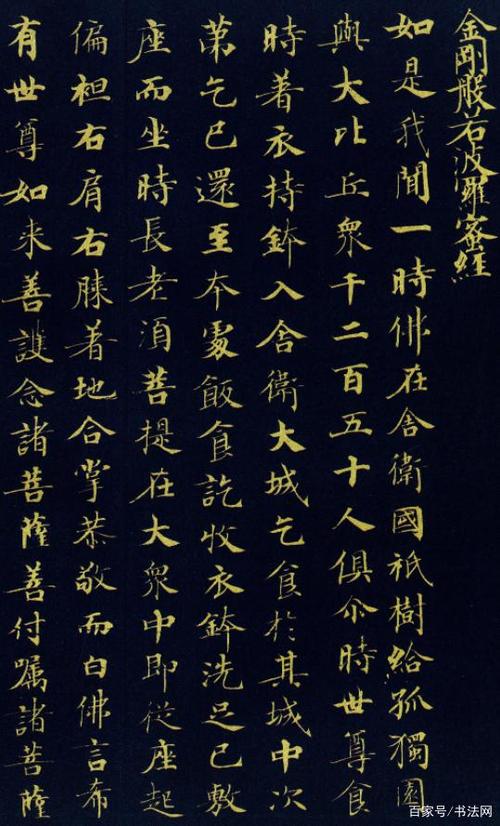 金剛般若波羅蜜經
如是我聞一時佛在舍衛國祇樹給孤獨園
與大比丘衆千二百五十人俱尒時世尊食
時著衣持鉢入舍衛大城乞食於其城中次
苐乞已還至本處飯食訖收衣鉢洗足已敷
座而坐時長老湏菩提在大衆中即從座起
偏袒右肩右膝著地合掌恭敬而白佛言希
有世尊如来善護念諸菩薩善付嘱諸菩薩
百家号/书法网